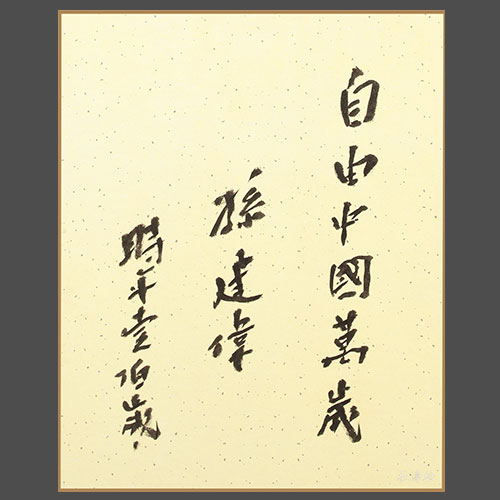 自由中國萬歲
孫建偉
時年壹佰歲